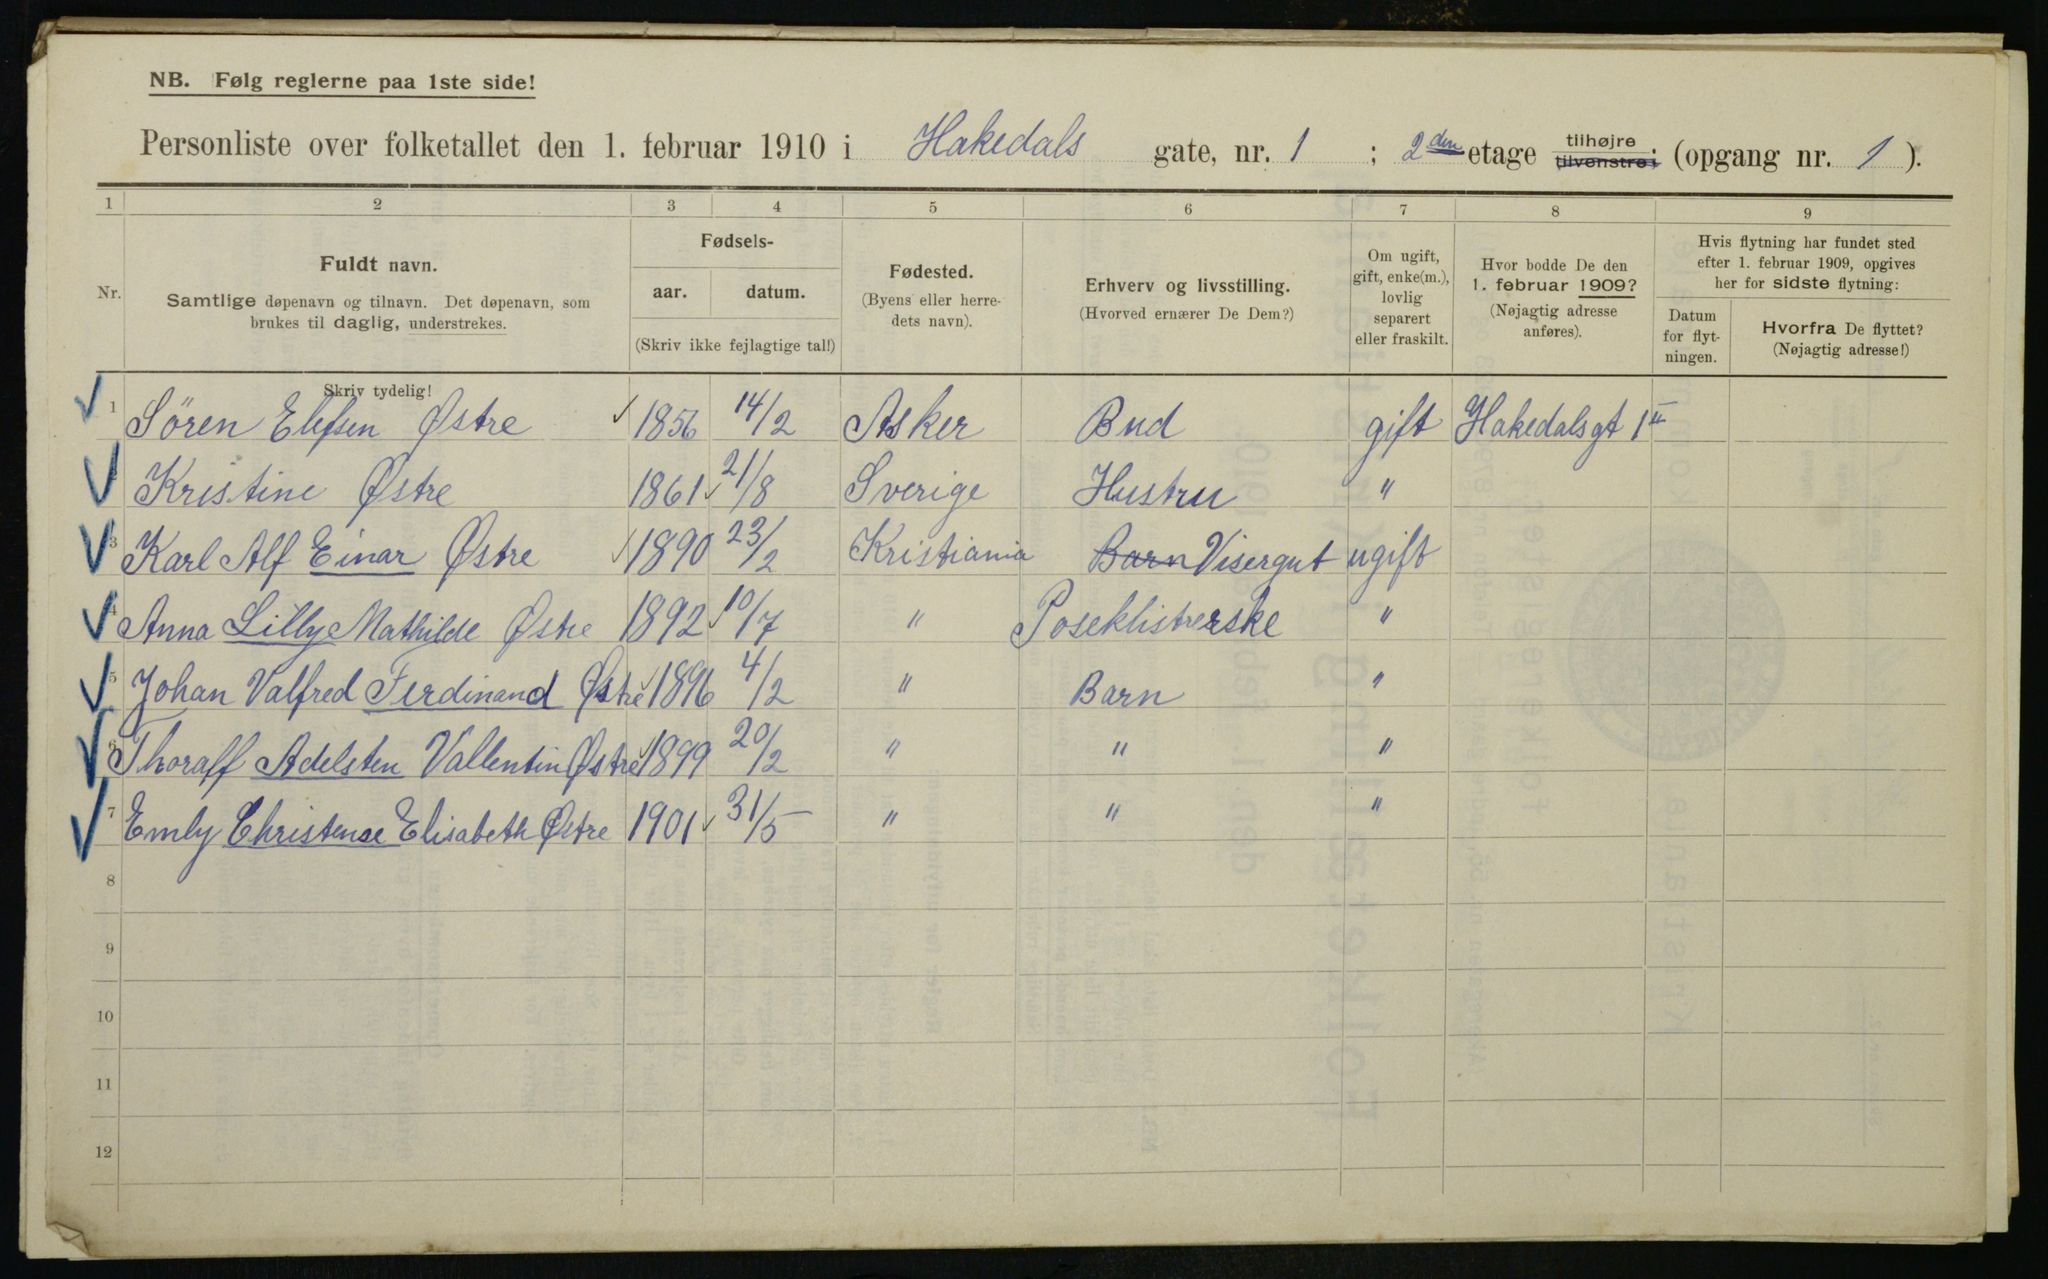 NB. Følg reglerne paa 1ste side!
Personliste over folketallet den 1. februar 1910 i Hakedals gate, nr. 1 ; 2den etage tilhøjre tilvenstre; (opgang nr. 1 ).
1 2 3 4 5 6 7 8 9
Nr.
Fuldt navn.
Samtlige døpenavn og tilnavn. Det døpenavn, som
brukes til daglig, understrekes.
Skriv tydelig!
Fødsels-
aar. datum.
(Skriv ikke fejlagtige tal!)
Fødested.
(Byens eller herre-
dets navn).
Erhverv og livsstilling.
(Hvorved ernærer De Dem?)
Om ugift,
gift, enke(m.),
lovlig
separert
eller fraskilt.
Hvor bodde De den
1. februar 1909?
(Nøjagtig adresse
anføres).
Hvis flytning har fundet sted
efter 1. februar 1909, opgives
her for sidste flytning:
Datum
for flyt-
ningen.
Hvorfra De flyttet?
(Nøjagtig adresse!)
1 Sören Elefsen Østre 1856 14/2 Asker Bud gift Hakedalsgt 1 II
Kristine Østre 1861 21/8 Sverige Hustru "
3 Karl Alf Einar Østre 1890 23/2 Kristiania Barn Visergut ugift
4 Anna Lilly Mathilde Østre 1892 10/7 " Poseklistrerske "
5 Johan Valfred Ferdinand Østre 1896 4/2 " Barn "
6 Thoralf Adelsten Vallentin Østre 1899 20/2 " " "
7 Emly Christense Elisabeth Østre 1901 31/5 " " "
8
9
10
11
12